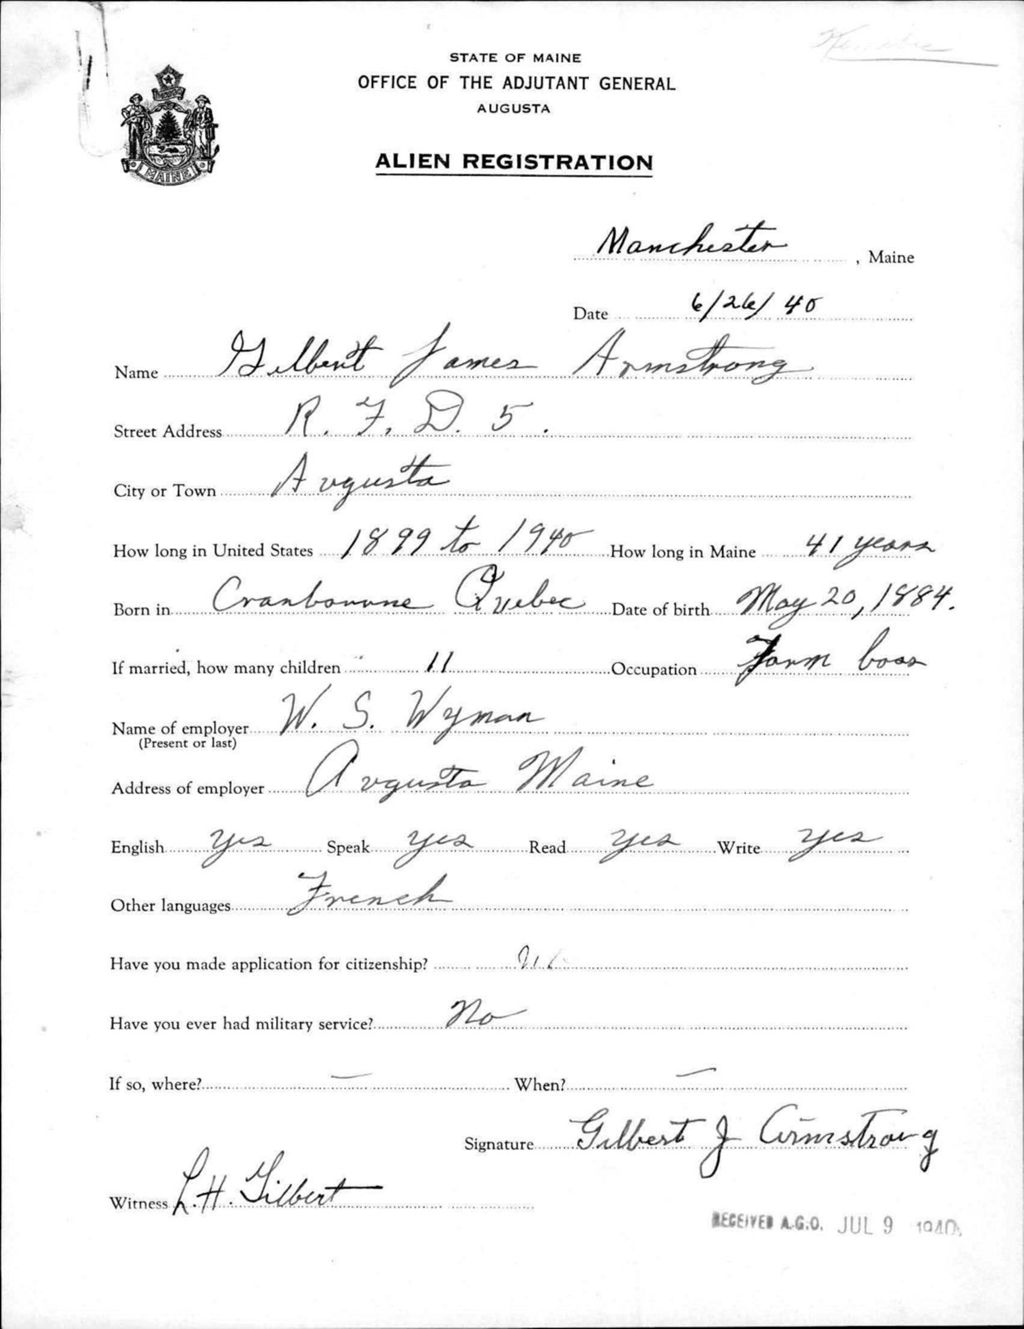 Kennebec
STATE OF MAINE
OFFICE OF THE ADJUTANT GENERAL
AUGUSTA
MAINE
ALIEN REGISTRATION
Manchester, Maine
Date 6/26/40
Name Gilbert James Armstrong
Street Address R. F. D. 5.
City or Town Augusta
How long in United States 1899 to 1940 How long in Maine 41 years
Born in Cranbourne Quebec Date of birth May 20, 1884.
If married, how many children 11 Occupation Farm boss
Name of employer W. S. Wyman
(Present or last)
Address of employer Augusta Maine
English yes Speak yes Read yes Write yes
Other languages French
Have you made application for citizenship?
Have you ever had military service? No
If so, where? — When? —
Signature Gilbert J Armstrong
Witness L. H. Gilbert
RECEIVED A.G.O. JUL 9 1940